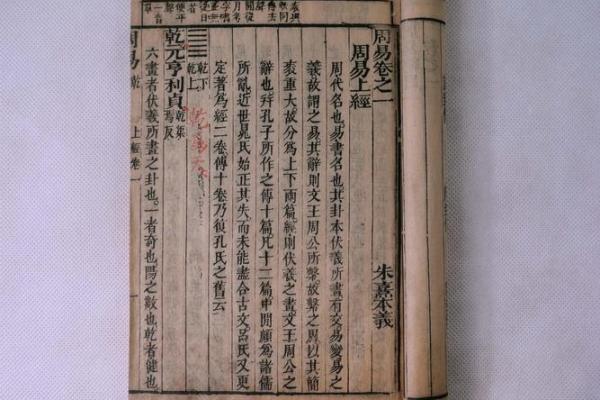 周易卷之一 朱熹本義
周易上經
周代名也易書名也其卦本伏羲所畫有交易變易之
義故謂之易其辭則文王周公所繫故繫之周以其簡
袠重大故分爲上下兩篇經則伏羲之畫文王周公之
辭也并孔子所作之傳十篇凡十二篇中間頗爲諸儒
所亂近世晁氏始正其失而未能盡合古文呂氏又更
定著爲經二卷傳十卷乃復孔氏之舊云
䷀ 乾下
乾上
乾爲天
乾元亨利貞 乾渠
焉反
六畫者伏羲所畫之卦也一者奇也陽之數也乾者健也
周易 乾 上經卷一 一